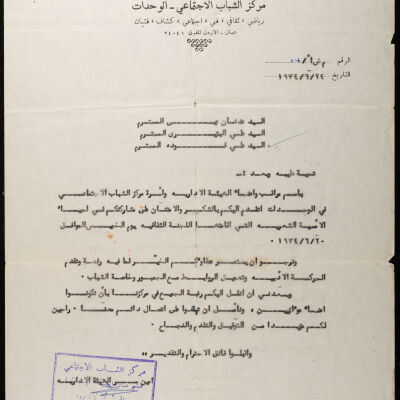 مركز الشباب الاجتماعي - الوحدات
رياضي ، ثقافي ، فني ، اجتماعي ، كشاف ، فتيان
عمان - الاردن تلفون ٢٤٠٤١
الرقم م ش أ /
التاريخ ١٩٧٤/٦/٢٤
السيد عدنان المحترم
السيد علي البتيري المحترم
السيد علي فوده المحترم
تحية طيبة وبعد :-
باسم مراقب واعضاء الهيئة الادارية وأسرة مركز الشباب الاجتماعي
في الوحدات اتقدم اليكم بالشكر والامتنان على مشاركتكم في احياء
الأمسية الشعرية التي اقامتها اللجنة الثقافية يوم الخميس الموافق
١٩٧٤/٦/٢٠ ٠
ونرجو ان يستمر عطاؤكم الخير لما فيه رفعة وتقدم
الحركة الأدبية وتعميق الروابط مع الجمهور وخاصة الشباب ٠
ويسعدني ان انقل اليكم رغبة الجميع في مركزنا بأن تكونوا
اعضاء مؤازرين ، ونأمل ان تبقوا على اتصال دائم معنا ، راجين
لكم مزيدا من التوفيق والتقدم والنجاح ٠
واقبلوا فائق الاحترام والتقدير ،،
مركز الشباب الاجتماعي
امين سر الهيئة الادارية